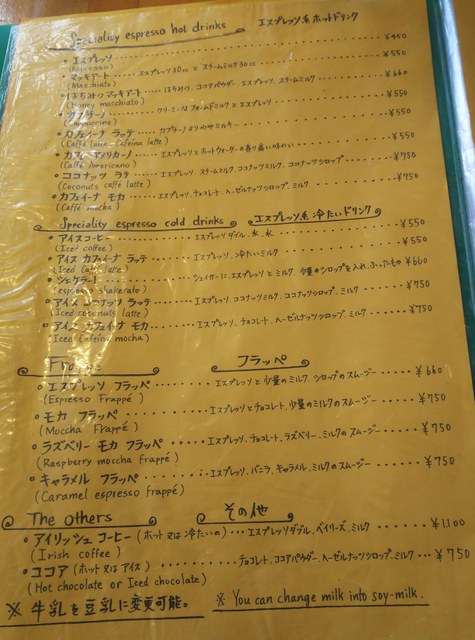 Speciality espresso hot drinks エスプレッソ系 ホットドリンク
・エスプレッソ ¥450
(Espresso)
・マッキアート エスプレッソ30cc × スチームミルク30cc ¥550
(Macchiato)
・はちみつ マッキアート はちみつ、ココアパウダー、エスプレッソ、スチームミルク ¥660
(Honey macchiato)
・カプチーノ クリーミーなフォームドミルク × エスプレッソ ¥550
・カフェイーナ ラテ カプチーノよりややミルキー ¥550
(Caffé latte-Cafeina latte)
・カフェ アメリカーノ エスプレッソとホットウォーターの香り高い味わい ¥550
(Caffé Americano)
・ココナッツ ラテ エスプレッソ、スチームミルク、ココナッツミルク、ココナッツシロップ ¥750
(Coconuts caffé latte)
・カフェイナ モカ エスプレッソ、チョコレート、ヘーゼルナッツシロップ、ミルク ¥750
(Caffé mocha)
Speciality espresso cold drinks エスプレッソ系 冷たいドリンク
・アイスコーヒー エスプレッソダブル、水、氷 ¥550
(Iced coffee)
・アイス カフェイナ ラテ エスプレッソ、冷たいミルク ¥550
(Iced Caffé latte)
・シェケラート シェイカーに、エスプレッソとミルク、少量のシロップを入れ、ふったもの ¥660
(espresso shakerato)
・アイス ココナッツ ラテ エスプレッソ、ココナッツミルク、ココナッツシロップ、ミルク ¥750
(Iced coconuts latte)
・アイス カフェイナ モカ エスプレッソ、チョコレート、ヘーゼルナッツシロップ、ミルク ¥750
(Iced Cafeina mocha)
フラッペ
○エスプレッソ フラッペ エスプレッソと少量のミルク、シロップのスムージー ¥660
(Espresso Frappé)
○モカ フラッペ エスプレッソとチョコレート、少量のミルクのスムージー ¥750
(Moccha Frappé)
○ラズベリー モカ フラッペ エスプレッソ、チョコレート、ラズベリー、ミルクのスムージー ¥750
(Raspberry moccha frappé)
○キャラメル フラッペ エスプレッソ、バニラ、キャラメル、ミルクのスムージー ¥750
(Caramel espresso frappé)
The others その他
○アイリッシュ コーヒー (ホット 又は 冷たいの) エスプレッソダブル、ベイリーズ、ミルク ¥1,100
(Irish coffee)
○ココア (ホット 又は アイス) チョコレート、ココアパウダー、ヘーゼルナッツシロップ、ミルク ¥750
(Hot chocolate or Iced chocolate)
※ 牛乳を豆乳に変更可能。 ※ You can change milk into soy-milk.